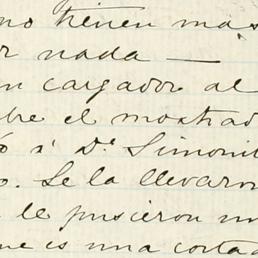 no tienen mas
or nada —
un cargador al
bre el mostrad
ó á Dn. Simonit
o. Se la llevaron
le pusieron un
ue es una cortad